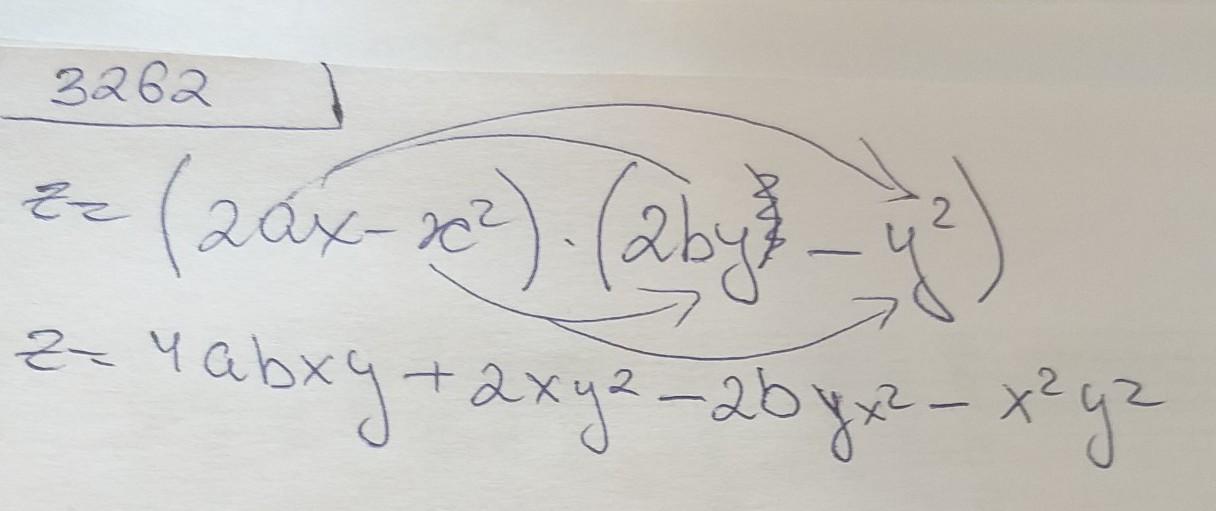 3262
z = (2ax - x²) · (2by - y²)
z = 4abxy + 2xy² - 2byx² - x²y²